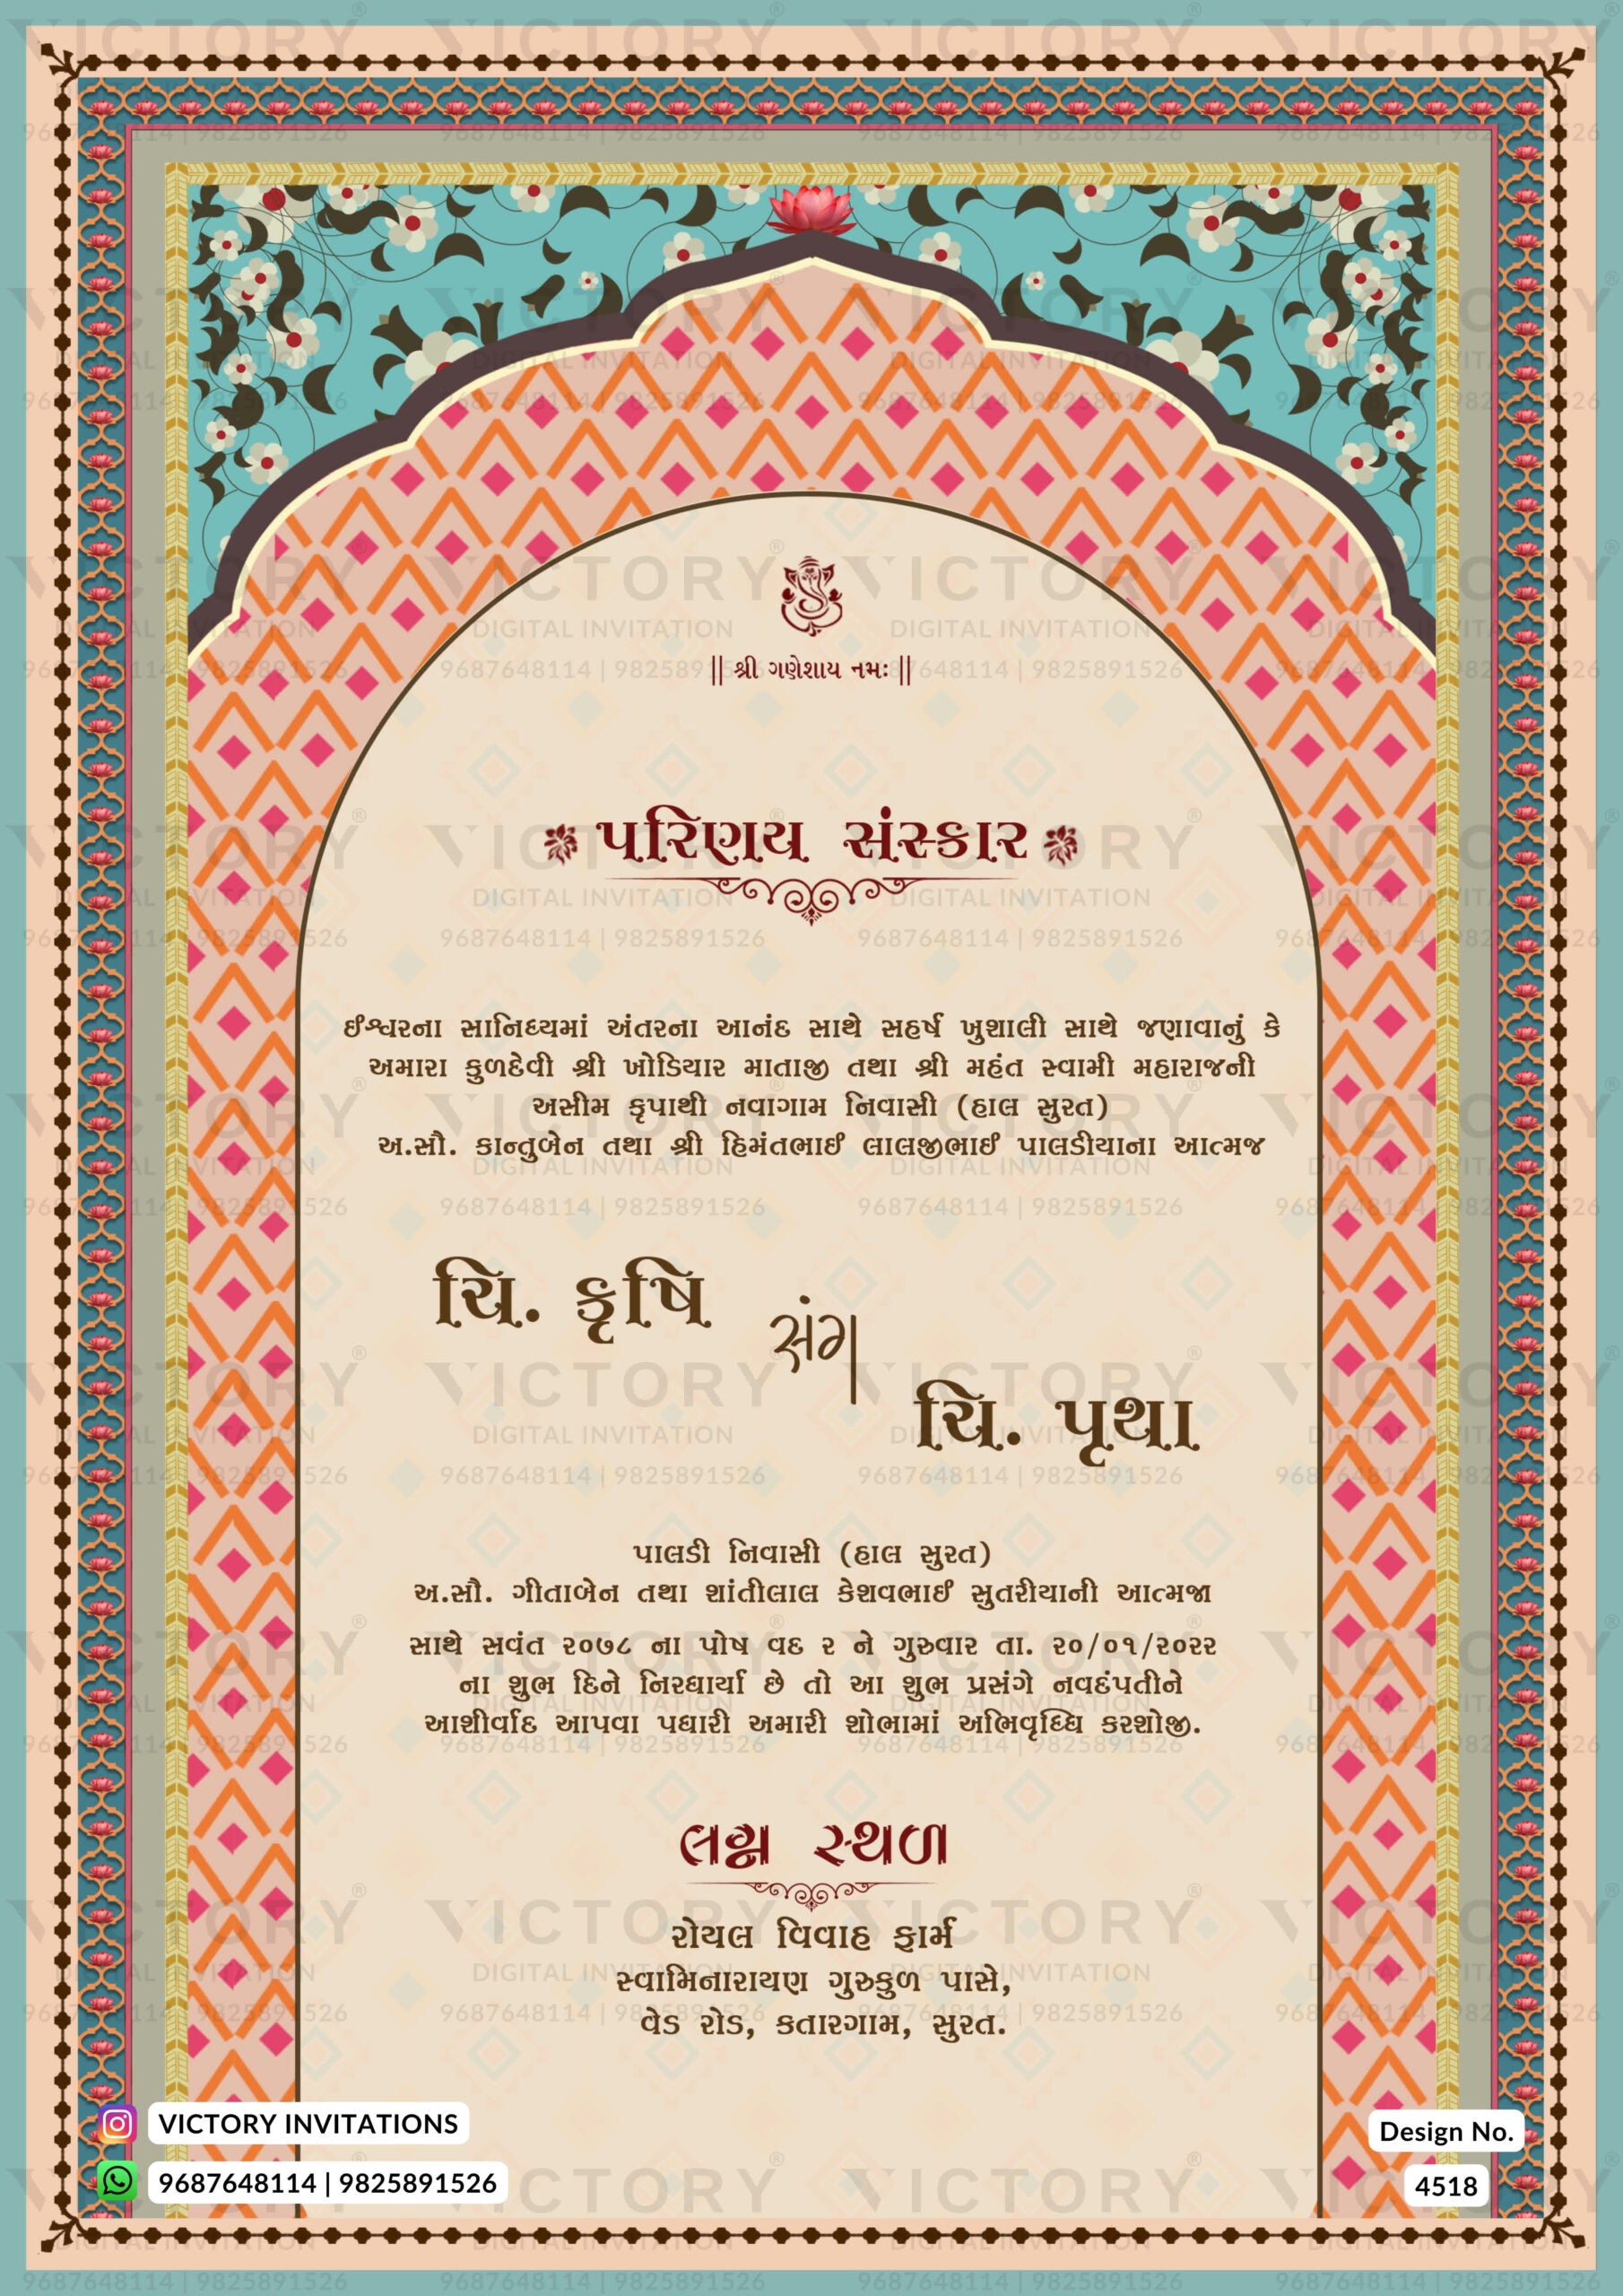 || શ્રી ગણેશાય નમઃ ||
પરિણય સંસ્કાર
ઈશ્વરના સાનિધ્યમાં અંતરના આનંદ સાથે સહર્ષ ખુશાલી સાથે જણાવાનું કે
અમારા કુળદેવી શ્રી ખોડિયાર માતાજી તથા શ્રી મહંત સ્વામી મહારાજની
અસીમ કૃપાથી નવાગામ નિવાસી (હાલ સુરત)
અ.સૌ. કાન્તુબેન તથા શ્રી હિમંતભાઈ લાલજીભાઈ પાલડીયાના આત્મજ
ચિ. કૃષિ
સંગ
ચિ. પૃથા
પાલડી નિવાસી (હાલ સુરત)
અ.સૌ. ગીતાબેન તથા શાંતીલાલ કેશવભાઈ સુતરીયાની આત્મજા
સાથે સવંત ૨૦૭૮ ના પોષ વદ ૨ ને ગુરુવાર તા. ૨૦/૦૧/૨૦૨૨
ના શુભ દિને નિરધાર્યા છે તો આ શુભ પ્રસંગે નવદંપતીને
આશીર્વાદ આપવા પધારી અમારી શોભામાં અભિવૃધ્ધિ કરશોજી.
લગ્ન સ્થળ
રોયલ વિવાહ ફાર્મ
સ્વામિનારાયણ ગુરુકુળ પાસે,
વેડ રોડ, કતારગામ, સુરત.
VICTORY INVITATIONS
9687648114 | 9825891526
Design No.
4518
VICTORY
DIGITAL INVITATION
9687648114 | 9825891526